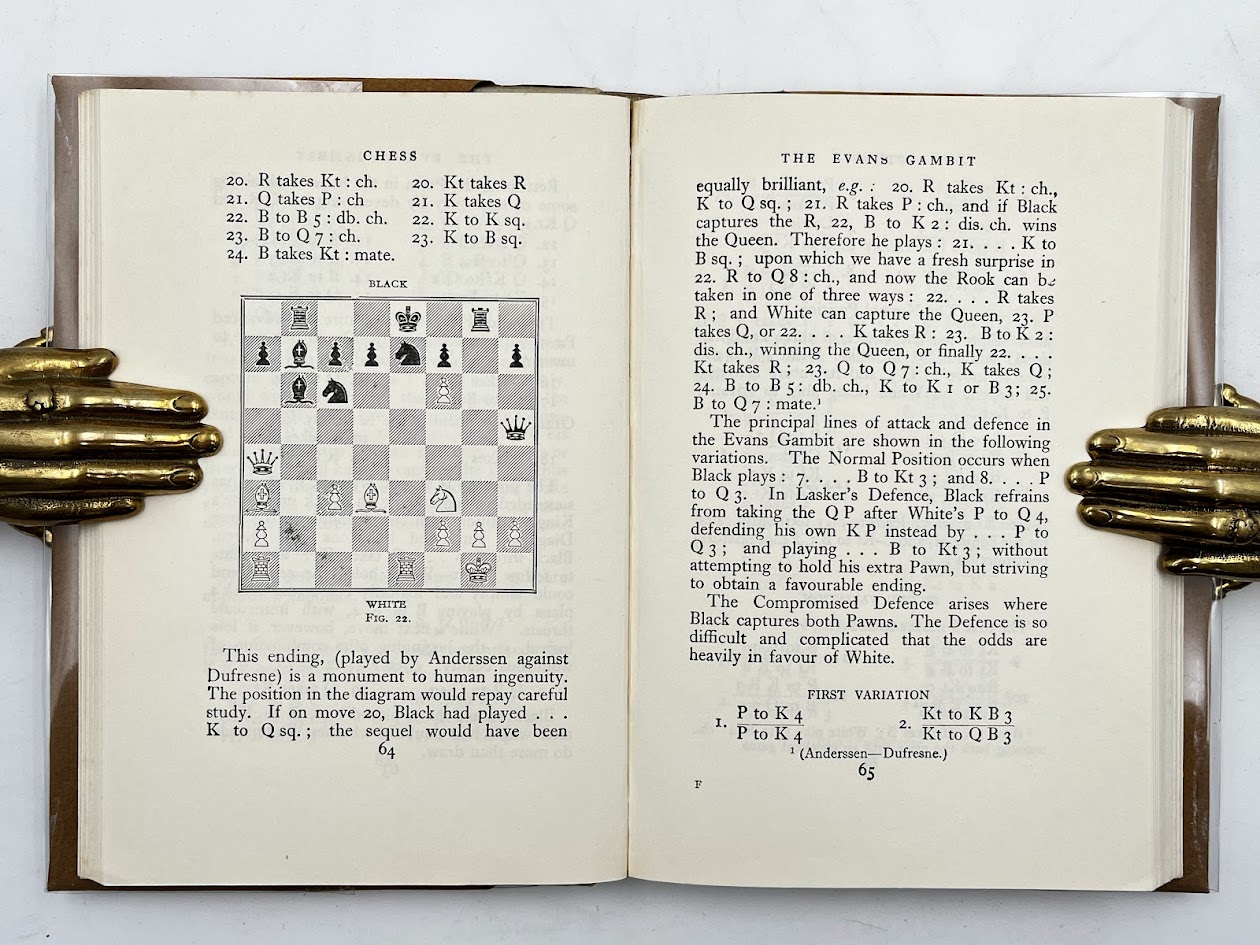 CHESS
20. R takes Kt : ch. 20. Kt takes R
21. Q takes P : ch 21. K takes Q
22. B to B 5 : db. ch. 22. K to K sq.
23. B to Q 7 : ch. 23. K to B sq.
24. B takes Kt : mate.
BLACK
WHITE
FIG. 22.
This ending, (played by Anderssen against
Dufresne) is a monument to human ingenuity.
The position in the diagram would repay careful
study. If on move 20, Black had played . . .
K to Q sq. ; the sequel would have been
64
THE EVANS GAMBIT
equally brilliant, e.g. : 20. R takes Kt : ch.,
K to Q sq. ; 21. R takes P : ch., and if Black
captures the R, 22, B to K 2 : dis. ch. wins
the Queen. Therefore he plays : 21. . . . K to
B sq. ; upon which we have a fresh surprise in
22. R to Q 8 : ch., and now the Rook can be
taken in one of three ways : 22. . . . R takes
R ; and White can capture the Queen, 23. P
takes Q, or 22. . . . K takes R : 23. B to K 2 :
dis. ch., winning the Queen, or finally 22. . . .
Kt takes R ; 23. Q to Q 7 : ch., K takes Q ;
24. B to B 5 : db. ch., K to K 1 or B 3 ; 25.
B to Q 7 : mate.¹
The principal lines of attack and defence in
the Evans Gambit are shown in the following
variations. The Normal Position occurs when
Black plays : 7. . . . B to Kt 3 ; and 8. . . . P
to Q 3. In Lasker's Defence, Black refrains
from taking the Q P after White's P to Q 4,
defending his own K P instead by . . . P to
Q 3 ; and playing . . . B to Kt 3 ; without
attempting to hold his extra Pawn, but striving
to obtain a favourable ending.
The Compromised Defence arises where
Black captures both Pawns. The Defence is so
difficult and complicated that the odds are
heavily in favour of White.
FIRST VARIATION
1. P to K 4 2. Kt to K B 3
P to K 4 Kt to Q B 3
¹ (Anderssen—Dufresne.)
65
F